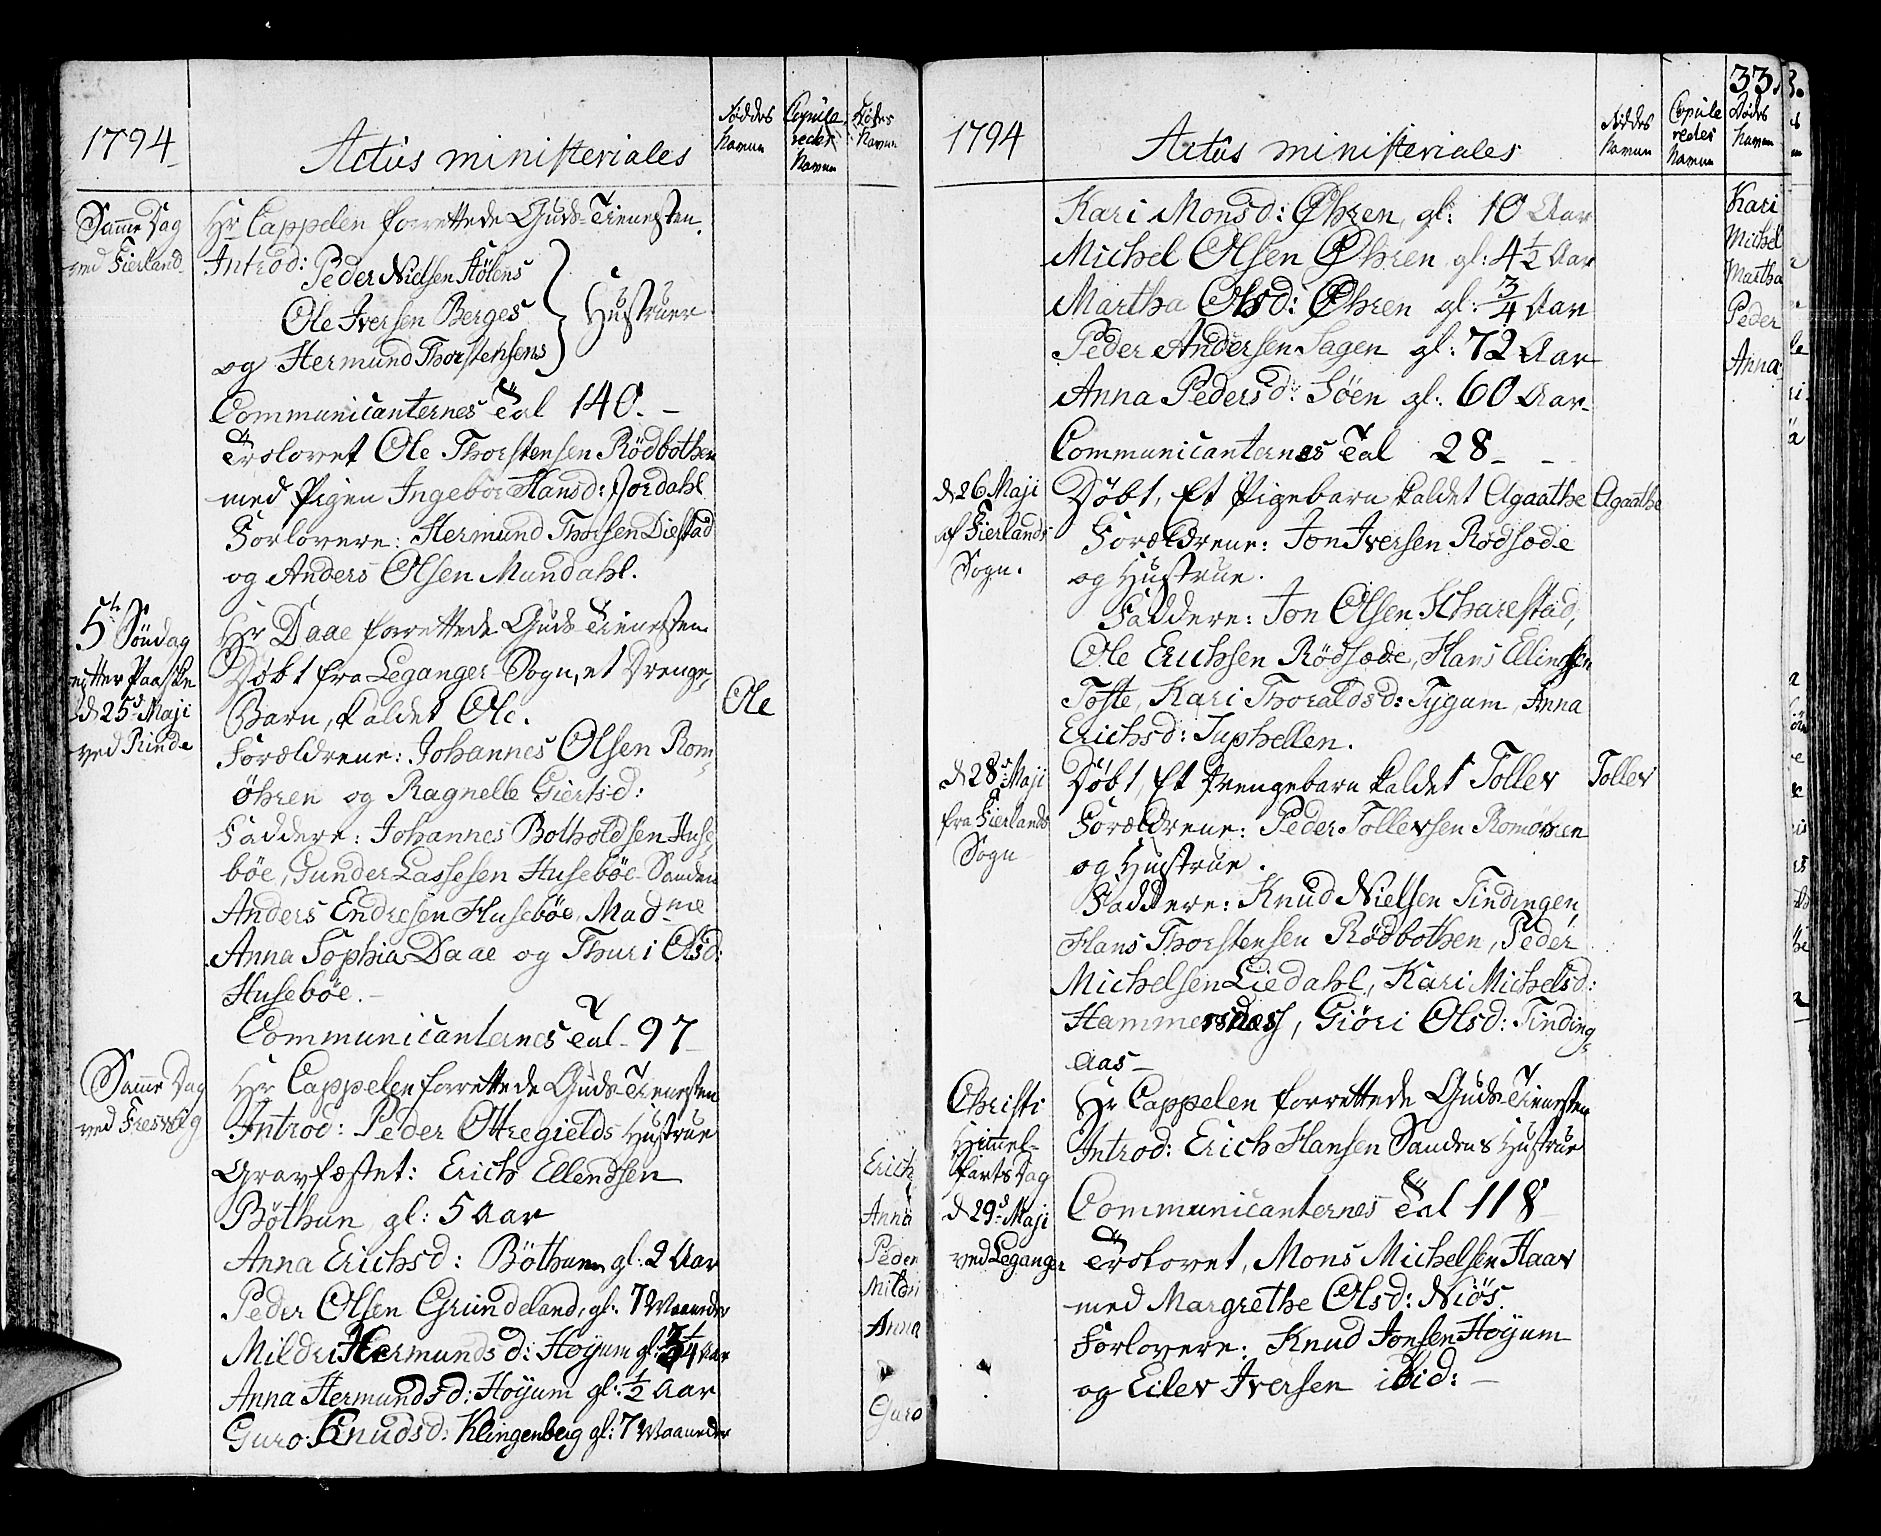 1794
Actus ministeriales
Föddes Navne
Copuleredes Navne
Dödes Navne
Samme Dag
ved Fierland
Hr Cappelen forrettede Guds-Tienesten.
Introd: Peder Nielsen Stölens
Ole Iversen Berges
og Hermund Thorstensens
Hustruer
Communicanternes Tal 140.
Trolovet Ole Thorstensen Rödbothen
med Pigen Ingebor Hansd: Jordahl
Forlovere: Hermund Thorsen Diestad
og Anders Olsen Mundahl.
5te Söndag
efter Paaske
d 25d Maji
ved Rinde
Hr Daae forrettede Guds-Tienesten
Döbt fra Leganger Sogn, et Drenge-
Barn, kaldet Ole.
Ole
Forældrene: Johannes Olsen Rom-
öhren og Ragnelle Giertsd:
Faddere: Johannes Botholdsen Huse-
böe, Gunder Lassesen Huseböe Sanden
Anders Endresen Huseböe, Madme
Anna Sophia Daae og Thuri Olsd:
Huseböe.
Communicanternes Tal 97
Samme Dag
ved Freswig
Hr Cappelen forrettede Guds-Tienesten
Introd: Peder Ottregields Hustrue
Gravfæstet: Erich Ellendsen
Böthun gl: 5 Aar
Erich
Anna Erichsd: Böthun gl: 2 Aar
Anna
Peder Olsen Grundeland, gl: 7 Maaneder
Peder
Mildri Hermundsd: Hoÿum gl: Aar
Mildri
Anna Hermundsd: Hoÿum gl: 1/2 Aar
Anna
Guro Knudsd: Klingenberg gl: 7 Maaneder
Guro
33.
1794
Actus ministeriales
Föddes Navne
Copuleredes Navne
Dödes Navne
Kari Monsd: Öhren, gl: 10 Aar
Kari
Michel Olsen Öhren gl: 4 1/2 Aar
Michel
Martha Olsd: Öhren gl: 3/4 Aar
Martha
Peder Andersen Sagen gl: 72 Aar
Peder
Anna Pedersd: Söen gl: 60 Aar
Anna
Communicanternes Tal 28
d 26 Maji
af Fierlands
Sogn.
Döbt, Et Pigebarn kaldet Agaathe
Agaathe
Forældrene: Jon Iversen Rödsæde
og Hustrue.
Faddere: Jon Olsen Scharestad,
Ole Erichsen Rödsæde, Hans Ellingsen
Tofte, Kari Thoraldsd: Tygum, Anna
Erichsd: Suphellen.
d 28d Maji
fra Fierlands
Sogn
Döbt, Et Drengebarn kaldet Tollev
Tollev
Forældrene: Peder Tollevsen Romöhren
og Hustrue.
Faddere: Knud Nielsen Tindingen,
Hans Thorstensen Rödbothen, Peder
Michelsen Liedahl, Kari Michelsd:
Hammersnæss, Giöri Olsd: Tinding-
aas
Christi
Himel-
farts Dag
d 29d Maji
ved Leganger
Hr Cappelen forrettede Guds-Tienesten
Introd: Erich Hansen Sandens Hustrue
Communicanternes Tal 118
Trolovet, Mons Michelsen Haav
med Margrethe Olsd: Niös.
Forlovere: Knud Jonsen Hoÿum
og Eilev Iversen ibid: